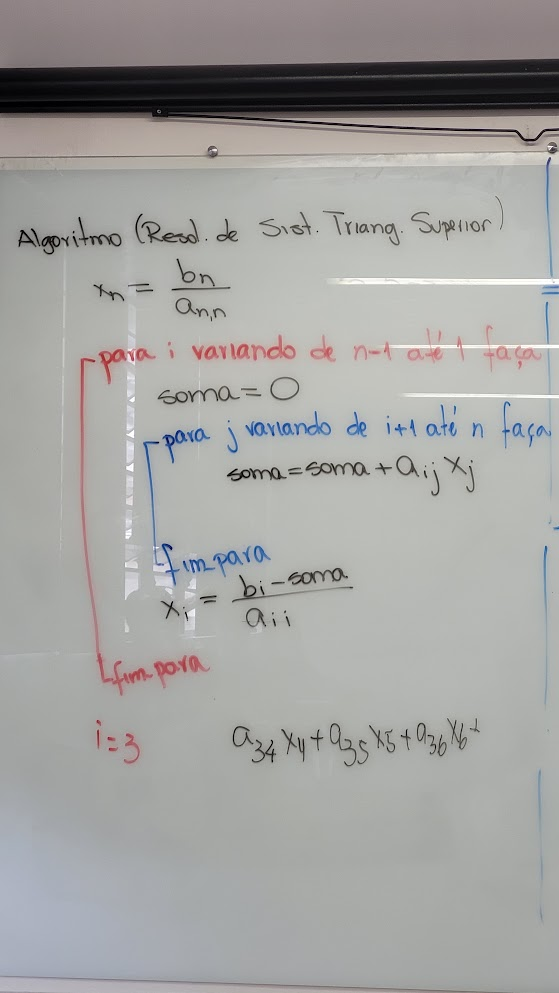 Algoritmo (Resol. de Sist. Triang. Superior)
xn = bn / an,n
para i variando de n-1 até 1 faça
soma = 0
para j variando de i+1 até n faça
soma = soma + aij xj
fim para
xi = bi - soma / aii
fim para
i=3 a34 x4 + a35 x5 + a36 x6 +